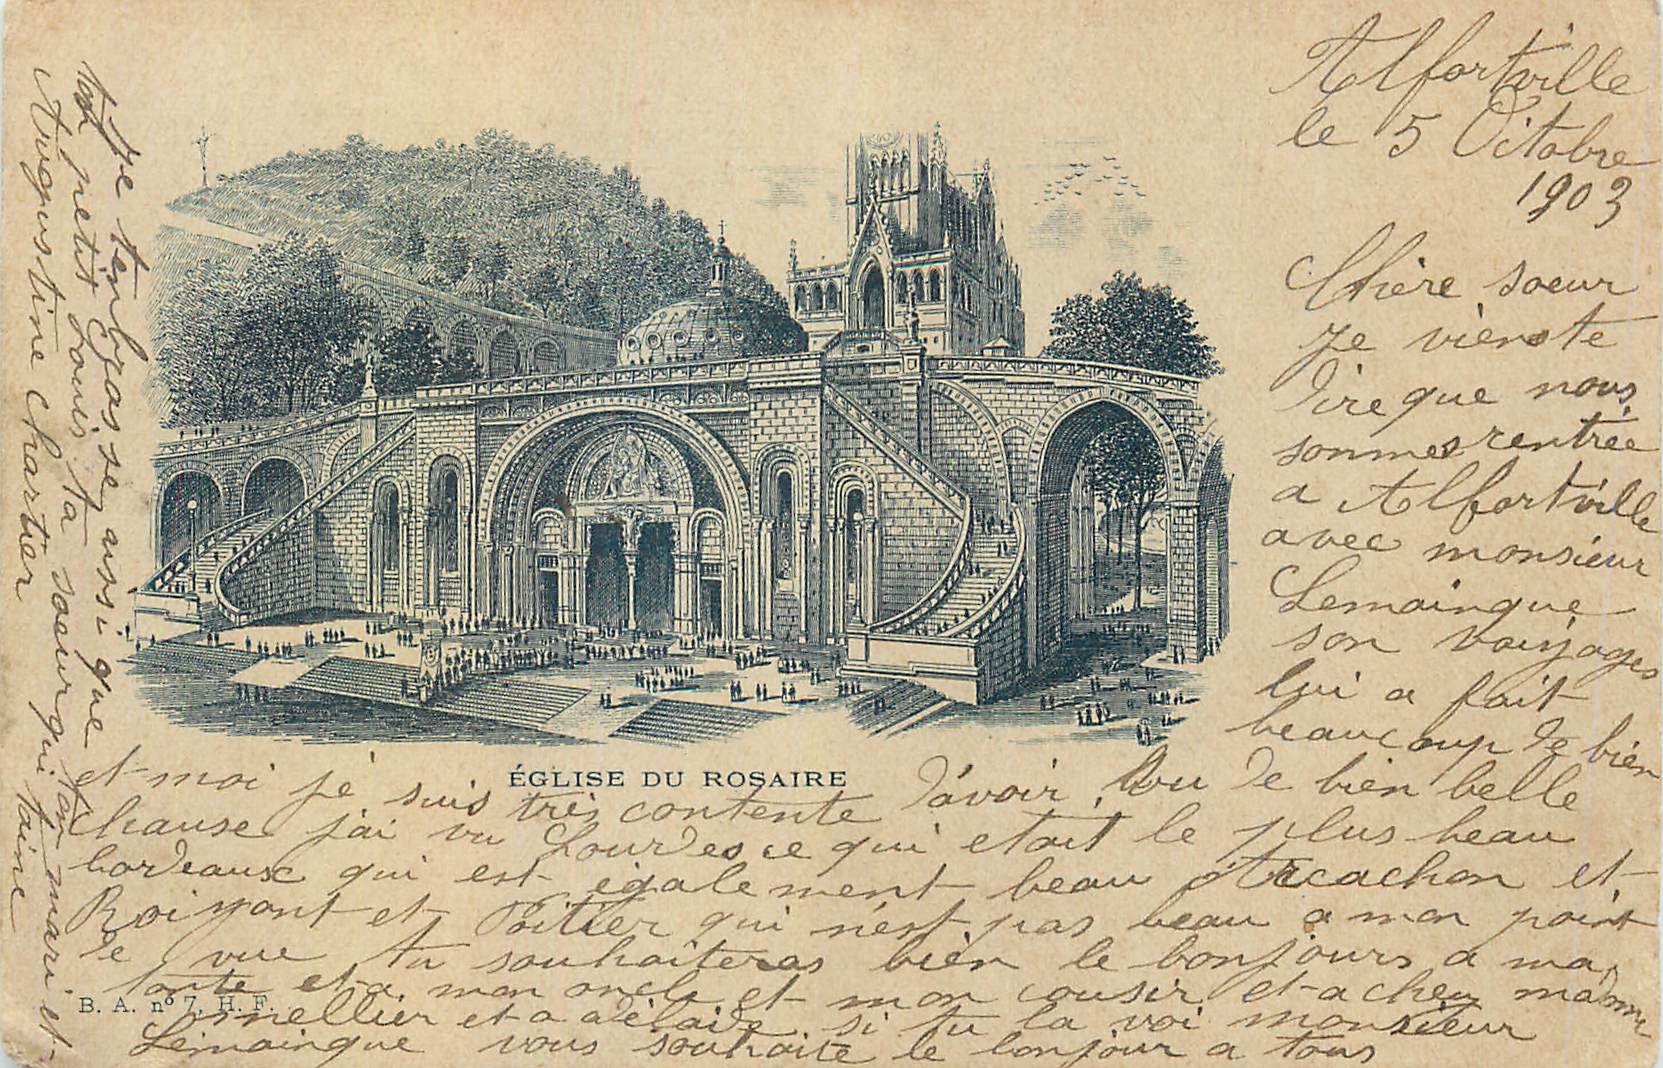 Alfortville
le 5 Octobre
1903
Chère soeur
Je viens te
dire que nous
sommes rentrée
a Alfortville
avec monsieur
Lemaingue
son voiyages
lui a fait
beaucoup de bien
et moi je suis très contente d'avoir vu de bien belle
chause j'ai vu Lourdes ce qui etait le plus beau
bordeaux qui est également beau Arcachon et
Roiyant et Poitier qui n'est pas beau a mon point
de vue tu souhaiteras bien le bonjours a ma
tante et a mon oncle et mon cousin et a chez madame
et a adelaide si tu la voi monsieur
Lemaingue vous souhaite le bonjour a tous
Je tenbrasse ansi que ton mari et
ton petit Louis ta soeur qui taime
Augustine Chartier
ÉGLISE DU ROSAIRE
B. A. nº 7. H. F.